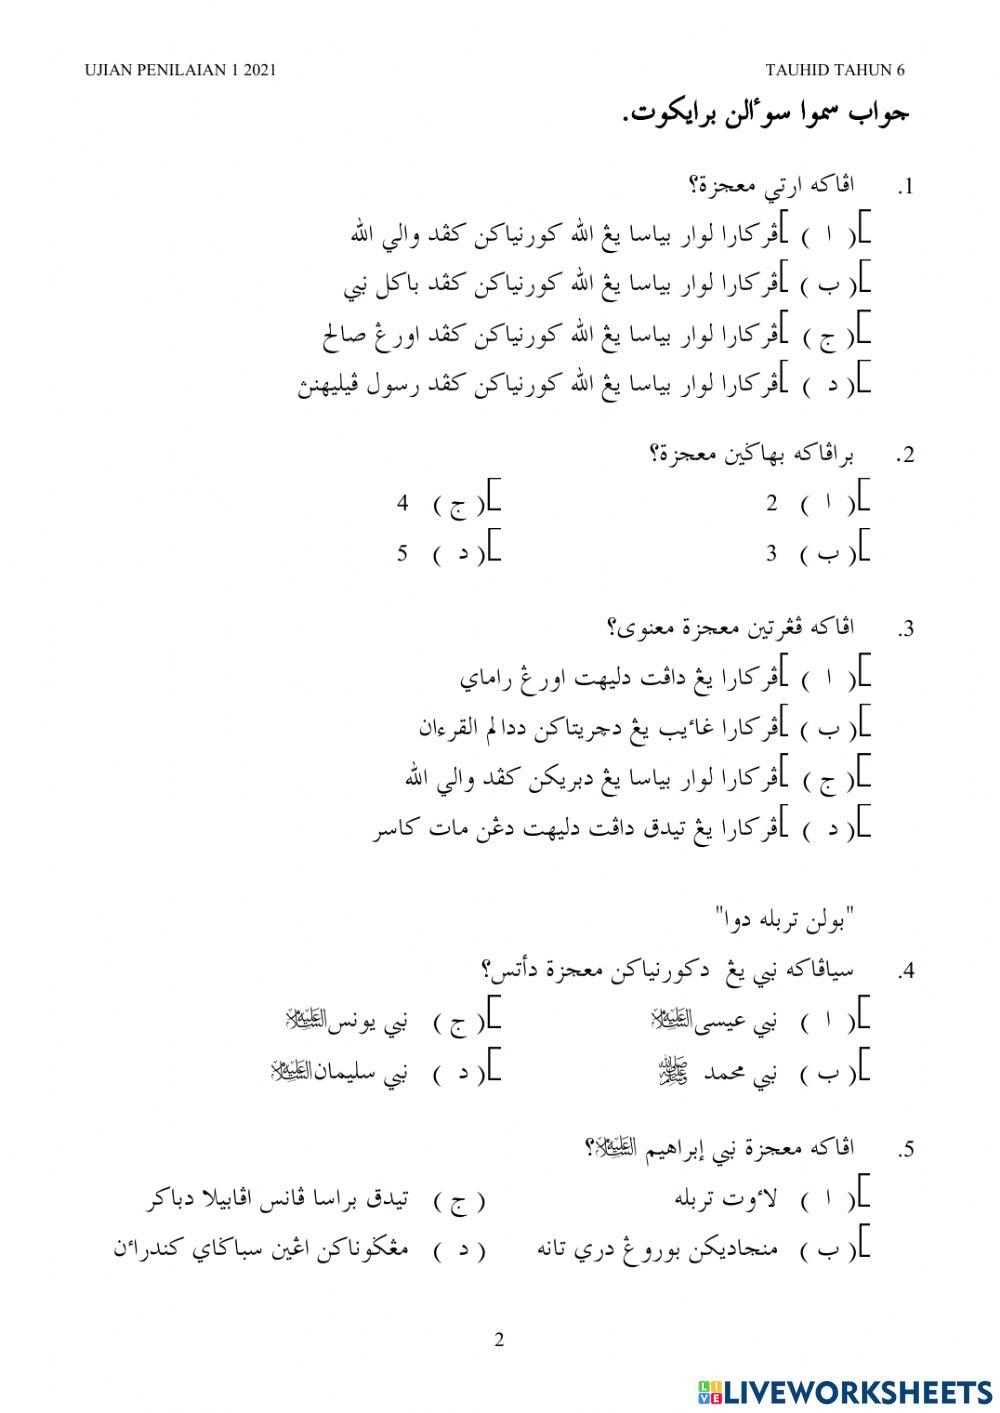 UJIAN PENILAIAN 1 2021 TAUHID TAHUN 6
جواب سموا سوٴالن برايكوت.
1. اڤاكه ارتي معجزة؟
( ا ) ڤركارا لوار بياسا يڠ الله كورنياكن كڤد والي الله
( ب ) ڤركارا لوار بياسا يڠ الله كورنياكن كڤد باكل نبي
( ج ) ڤركارا لوار بياسا يڠ الله كورنياكن كڤد اورڠ صالح
( د ) ڤركارا لوار بياسا يڠ الله كورنياكن كڤد رسول ڤيليهنث
2. براڤاكه بهاݢين معجزة؟
( ا ) 2 ( ج ) 4
( ب ) 3 ( د ) 5
3. اڤاكه ڤڠرتين معجزة معنوى؟
( ا ) ڤركارا يڠ داڤت دليهت اورڠ راماي
( ب ) ڤركارا غاٴيب يڠ دچريتاكن ددالم القرءان
( ج ) ڤركارا لوار بياسا يڠ دبريكن كڤد والي الله
( د ) ڤركارا يڠ تيدق داڤت دليهت دڠن مات كاسر
"بولن تربله دوا"
4. سياڤاكه نبي يڠ دكورنياكن معجزة دأتس؟
( ا ) نبي عيسى عليه السلام ( ج ) نبي يونس عليه السلام
( ب ) نبي محمد ﷺ ( د ) نبي سليمان عليه السلام
5. اڤاكه معجزة نبي إبراهيم عليه السلام؟
( ا ) لاٴوت تربله ( ج ) تيدق براسا ڤانس اڤابيلا دباكر
( ب ) منجاديكن بوروڠ دري تانه ( د ) مڠݢوناكن اڠين سباݢاي كندراٴن
2
LIVEWORKSHEETS